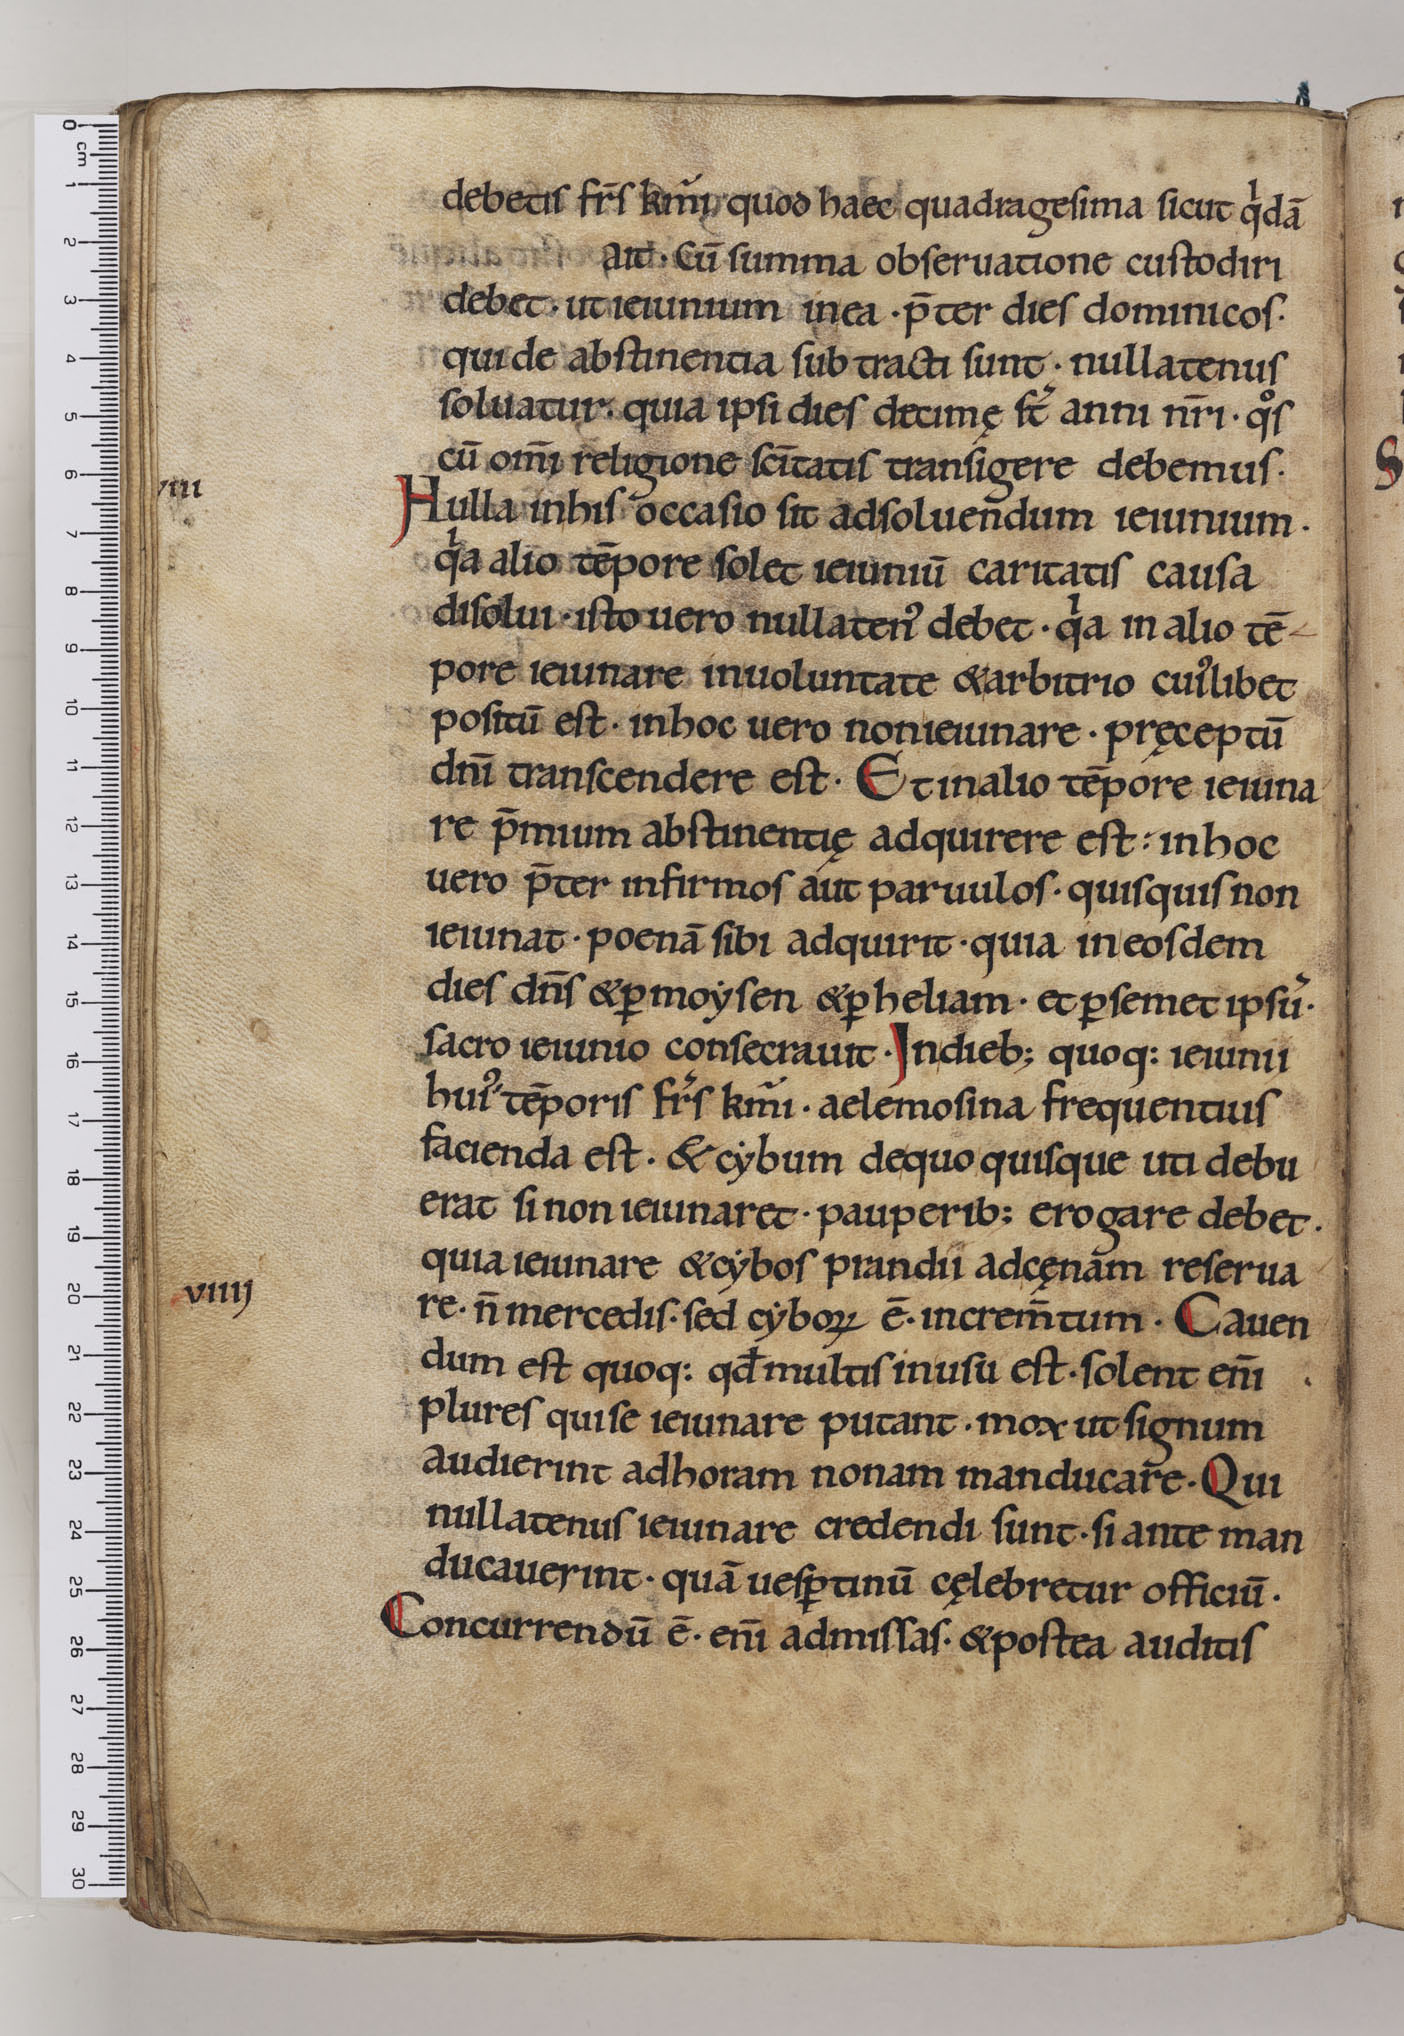 debetis fr̄s km̄i quod haec quadragesima sicut qͥdā
ait · Cū summa obseruatione custodiri
debet · ut ieiunium inea · p̄ter dies dominicos ·
qui de abstinentia sub tracti sunt · nullatenus
soluatur · quia ipsi dies decimę st̄ anni nr̄i · qͦs
cū om̄i religione scītatis transigere debemus ·
viii
Nulla inhis occasio sit adsoluendum ieiunium ·
qͥa alio tēpore solet ieiuniū caritatis causa
disolui · isto uero nullatenꝰ debet · qͥa in alio tē
pore ieiunare inuoluntate &arbitrio cuiꝰlibet
positū est · inhoc uero nonieiunare · pręceptū
dn̄i transcendere est · Et inalio tēpore ieiuna
re p̄mium abstinentię adquirere est : inhoc
uero p̄ter infirmos aut paruulos · quisquis non
ieiunat · poenā sibi adquirit · quia in eosdem
dies dn̄s &ꝑmoẏsen &ꝑheliam · et ꝑsemet ipsū ·
sacro ieiunio consecrauit · Indieb; quoq: ieiunii
huiꝰ tēporis fr̄s km̄i · aelemosina frequentius
facienda est · & cẏbum dequo quisque uti debu
erat si non ieiunaret · pauperib; erogare debet ·
quia ieiunare &cẏbos prandii adcęnam reserua
viiij
re · n̄ mercedis · sed cẏboꝝ ē · increm̄tum · Cauen
dum est quoq: qđ multis inusu est · solent en̄i
plures qui se ieiunare putant · mox ut signum
audierint adhoram nonam manducare · Qui
nullatenus ieiunare credendi sunt · si ante man
ducauerint · quā uesꝑtinū cęlebretur officiū ·
Concurrendū ē · en̄i admissas · &postea auditis